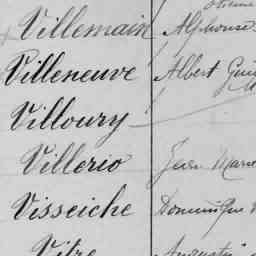 Villemain Alphonse
Villeneuve Albert
Villoury
Villerio Jean Marie
Visseiche Dominique
Vitre Augustin